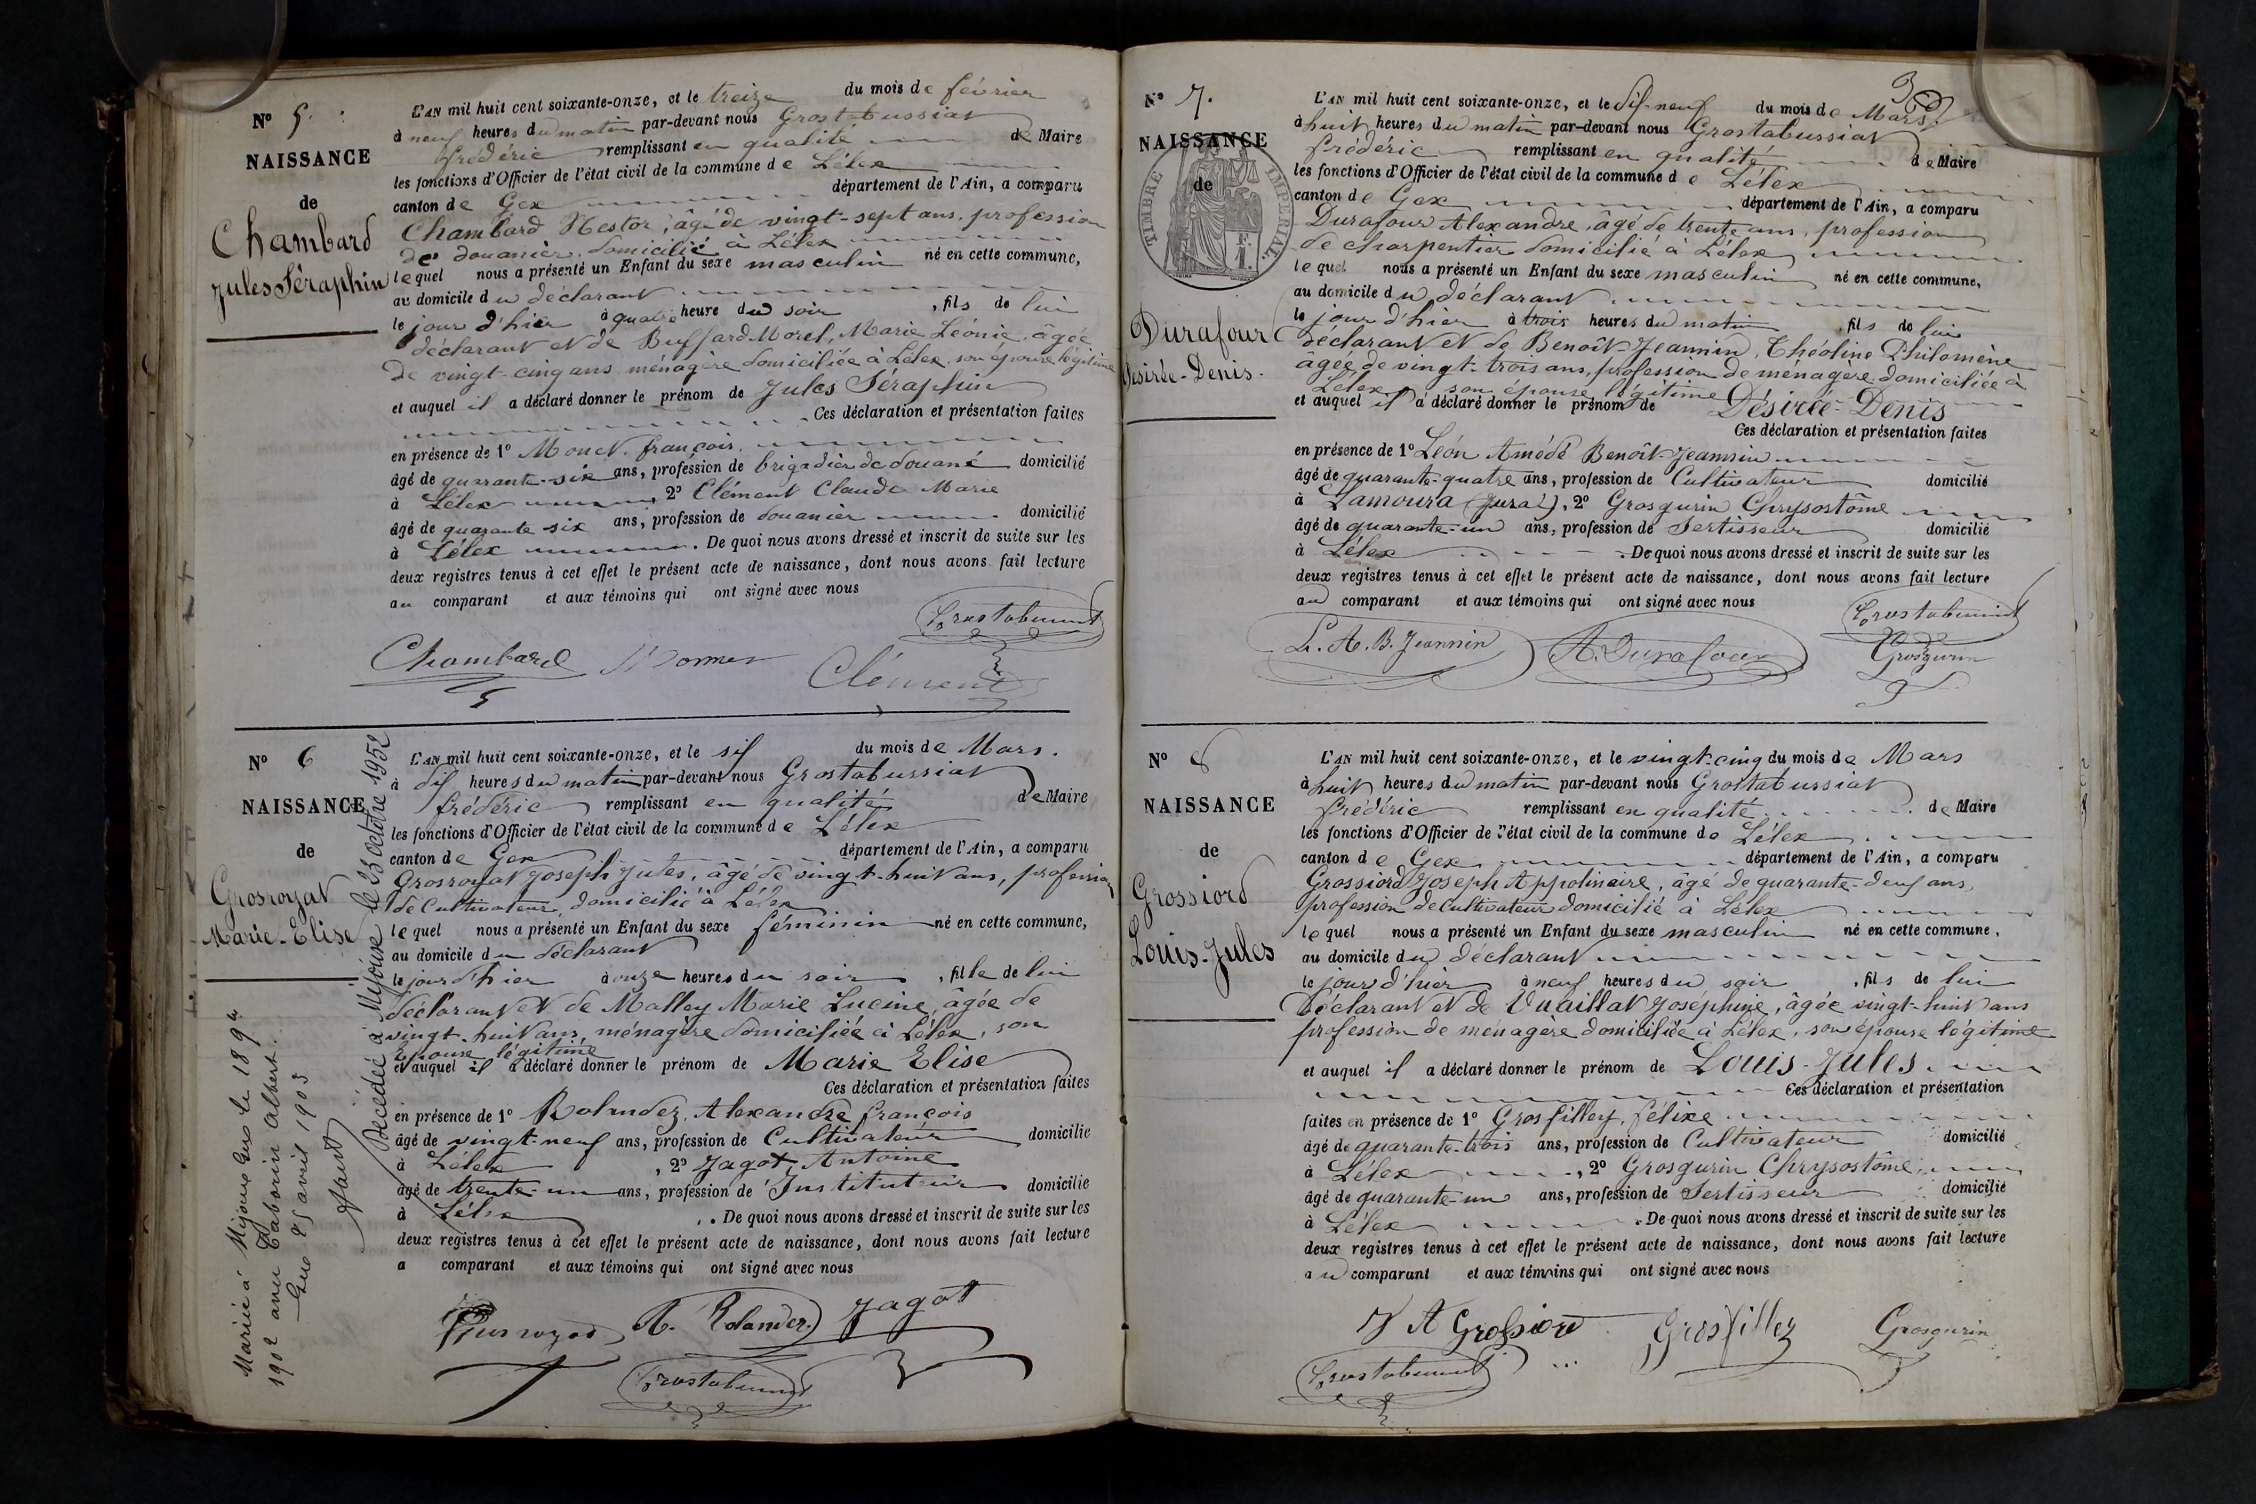 N° 5.
NAISSANCE
de
Chambard
Jules Séraphin
L'AN mil huit cent soixante-onze, et le treize du mois de février
à neuf heures du matin par-devant nous Grostabussiat
frédéric remplissant en qualité de Maire
les fonctions d'Officier de l'état civil de la commune de Lélex
canton de Gex département de l'Ain, a comparu
Chambard Nestor, âgé de vingt-sept ans, profession
de douanier, domicilié à Lélex
lequel nous a présenté un Enfant du sexe masculin né en cette commune,
au domicile du déclarant
le jour d'hier à quatre heure du soir, fils de lui
déclarant et de Buffard Morel, Marie Léonie, âgée
de vingt-cinq ans ménagère domiciliée à Lélex, son épouse légitime
et auquel il a déclaré donner le prénom de Jules Séraphin
Ces déclaration et présentation faites
en présence de 1° Monet françois
âgé de quarante-six ans, profession de brigadier de douane domicilié
à Lélex, 2° Clément Claude Marie
âgé de quarante six ans, profession de douanier domicilié
à Lélex. De quoi nous avons dressé et inscrit de suite sur les
deux registres tenus à cet effet le présent acte de naissance, dont nous avons fait lecture
au comparant et aux témoins qui ont signé avec nous
Grostabussiat
Chambard Clément
N° 6
NAISSANCE
de
Grosroyat
Marie-Elise
Mariée à Mijoux Gex le 18 9bre
1902 avec Taborin Albert.
Gex 25 avril 1903
Décédée à Mijoux le 23 octobre 1952
L'AN mil huit cent soixante-onze, et le six du mois de Mars.
à dix heures du matin par-devant nous Grostabussiat
frédéric remplissant en qualité de Maire
les fonctions d'Officier de l'état civil de la commune de Lélex
canton de Gex département de l'Ain, a comparu
Grosroyat Joseph Jules, âgé de vingt-huit ans, profession
de Cultivateur, domicilié à Lélex
lequel nous a présenté un Enfant du sexe féminin né en cette commune,
au domicile du déclarant
le jour d'hier à onze heures du soir, fille de lui
déclarant et de Malley Marie Lucine, âgée de
vingt-huit ans, ménagère domiciliée à Lélex, son
épouse légitime
et auquel il a déclaré donner le prénom de Marie Elise
Ces déclaration et présentation faites
en présence de 1° Rolandez, Alexandre françois
âgé de vingt-neuf ans, profession de Cultivateur domicilié
à Lélex, 2° Jagot, Antoine
âgé de trente-un ans, profession de Instituteur domicilié
à Lélex. De quoi nous avons dressé et inscrit de suite sur les
deux registres tenus à cet effet le présent acte de naissance, dont nous avons fait lecture
a comparant et aux témoins qui ont signé avec nous
Grosroyat A. Rolandez Jagot
Grostabussiat
3
N° 7.
NAISSANCE
de
TIMBRE IMPÉRIAL
Durafour
Désirée-Denis.
L'AN mil huit cent soixante-onze, et le dix-neuf du mois de Mars.
à huit heures du matin par-devant nous Grostabussiat
frédéric remplissant en qualité de Maire
les fonctions d'Officier de l'état civil de la commune de Lélex
canton de Gex département de l'Ain, a comparu
Durafour Alexandre, âgé de trente ans, profession
de charpentier domicilié à Lélex
lequel nous a présenté un Enfant du sexe masculin né en cette commune,
au domicile du déclarant
le jour d'hier à trois heures du matin, fils de lui
déclarant et de Benoît-Jeannin, Théoline Philomène
âgée de vingt-trois ans, profession de ménagère domiciliée à
Lélex, son épouse légitime
et auquel il a déclaré donner le prénom de Désirée-Denis
Ces déclaration et présentation faites
en présence de 1° Léon Amédé Benoît-Jeannin
âgé de quarante-quatre ans, profession de Cultivateur domicilié
à Lamoura (Jura), 2° Grosgurin Chrysostôme
âgé de quarante-un ans, profession de Sertisseur domicilié
à Lélex. De quoi nous avons dressé et inscrit de suite sur les
deux registres tenus à cet effet le présent acte de naissance, dont nous avons fait lecture
au comparant et aux témoins qui ont signé avec nous
Grostabussiat
L. A. B. Jeannin A. Durafour Grosgurin
N° 8
NAISSANCE
de
Grossiord
Louis-Jules
L'AN mil huit cent soixante-onze, et le vingt-cinq du mois de Mars
à huit heures du matin par-devant nous Grostabussiat
frédéric remplissant en qualité de Maire
les fonctions d'Officier de l'état civil de la commune de Lélex
canton de Gex département de l'Ain, a comparu
Grossiord Joseph Appolinaire, âgé de quarante-deux ans,
profession de cultivateur domicilié à Lélex
lequel nous a présenté un Enfant du sexe masculin né en cette commune,
au domicile du déclarant
le jour d'hier à neuf heures du soir, fils de lui
déclarant et de Vuaillat Joséphine, âgée vingt-huit ans
profession de ménagère domiciliée à Lélex, son épouse légitime
et auquel il a déclaré donner le prénom de Louis-Jules.
Ces déclaration et présentation
faites en présence de 1° Grosfilley, félixe
âgé de quarante-trois ans, profession de Cultivateur domicilié
à Lélex, 2° Grosgurin Chrysostôme
âgé de quarante-un ans, profession de Sertisseur domicilié
à Lélex. De quoi nous avons dressé et inscrit de suite sur les
deux registres tenus à cet effet le présent acte de naissance, dont nous avons fait lecture
au comparant et aux témoins qui ont signé avec nous
J A Grossiord Grosfilley Grosgurin
Grostabussiat